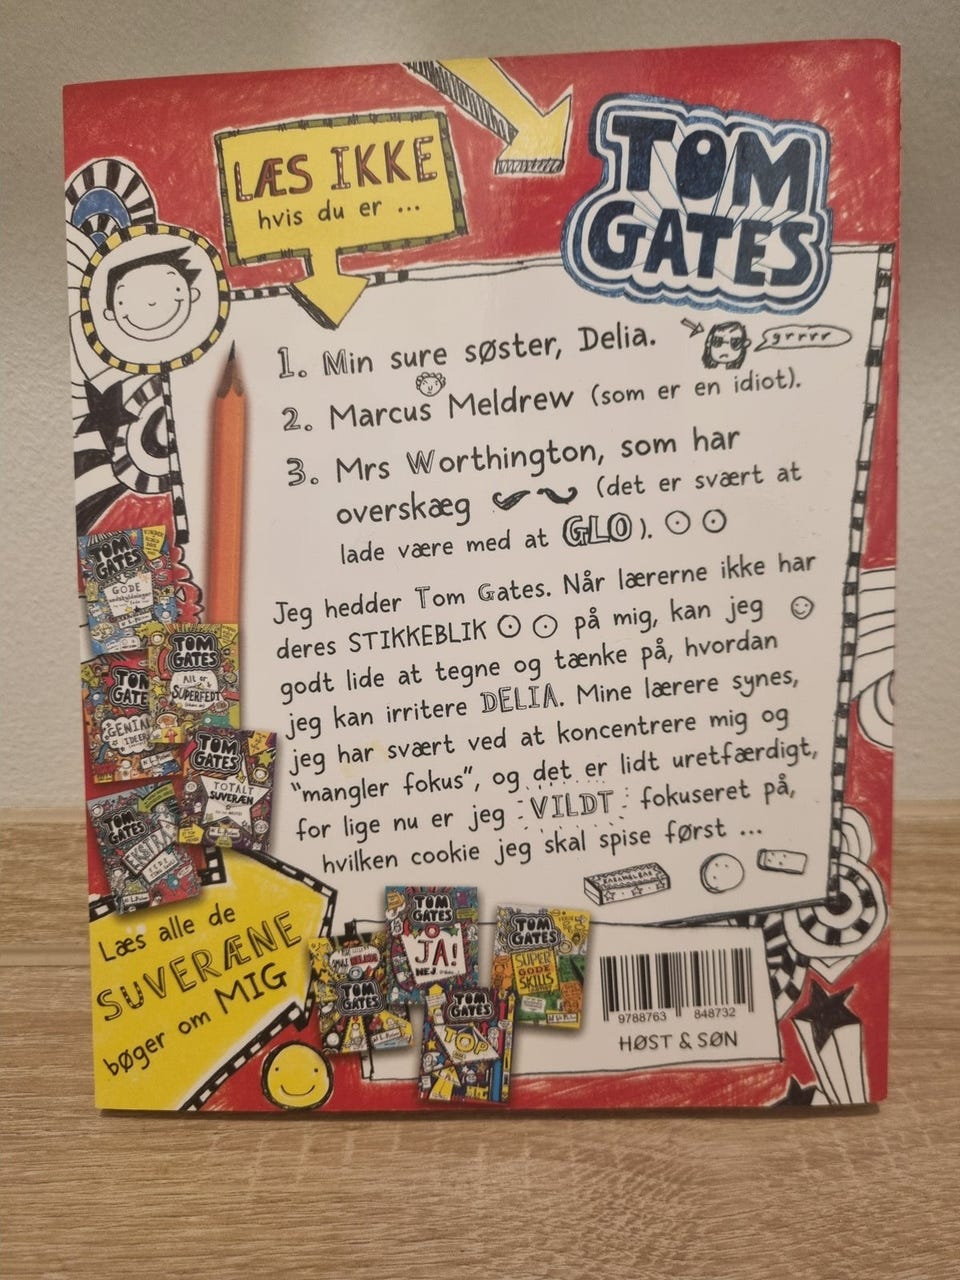 LÆS IKKE
hvis du er ...
TOM
GATES
1. Min sure søster, Delia.
grrrr
2. Marcus Meldrew (som er en idiot).
3. Mrs Worthington, som har
overskæg (det er svært at
lade være med at GLO).
Jeg hedder Tom Gates. Når lærerne ikke har
deres STIKKEBLIK på mig, kan jeg
godt lide at tegne og tænke på, hvordan
jeg kan irritere DELIA. Mine lærere synes,
jeg har svært ved at koncentrere mig og
"mangler fokus", og det er lidt uretfærdigt,
for lige nu er jeg VILDT fokuseret på,
hvilken cookie jeg skal spise først ...
KARAMELBAR
TOM
GATES
GODE
TOM
GATES
Alt er
SUPERFEDT
TOM
GATE
GENIA
IDEER
TOM
GATES
TOTALT
SUVERÆN
TOM
GATES
EKSTRA
Læs alle de
SUVERÆNE
bøger om MIG
TOM
GATES
TOM
GATES
JA!
NEJ.
TOM
GATES
SUPER
GODE
SKILLS
TOM
GATES
TOP
9788763 848732
HØST & SØN